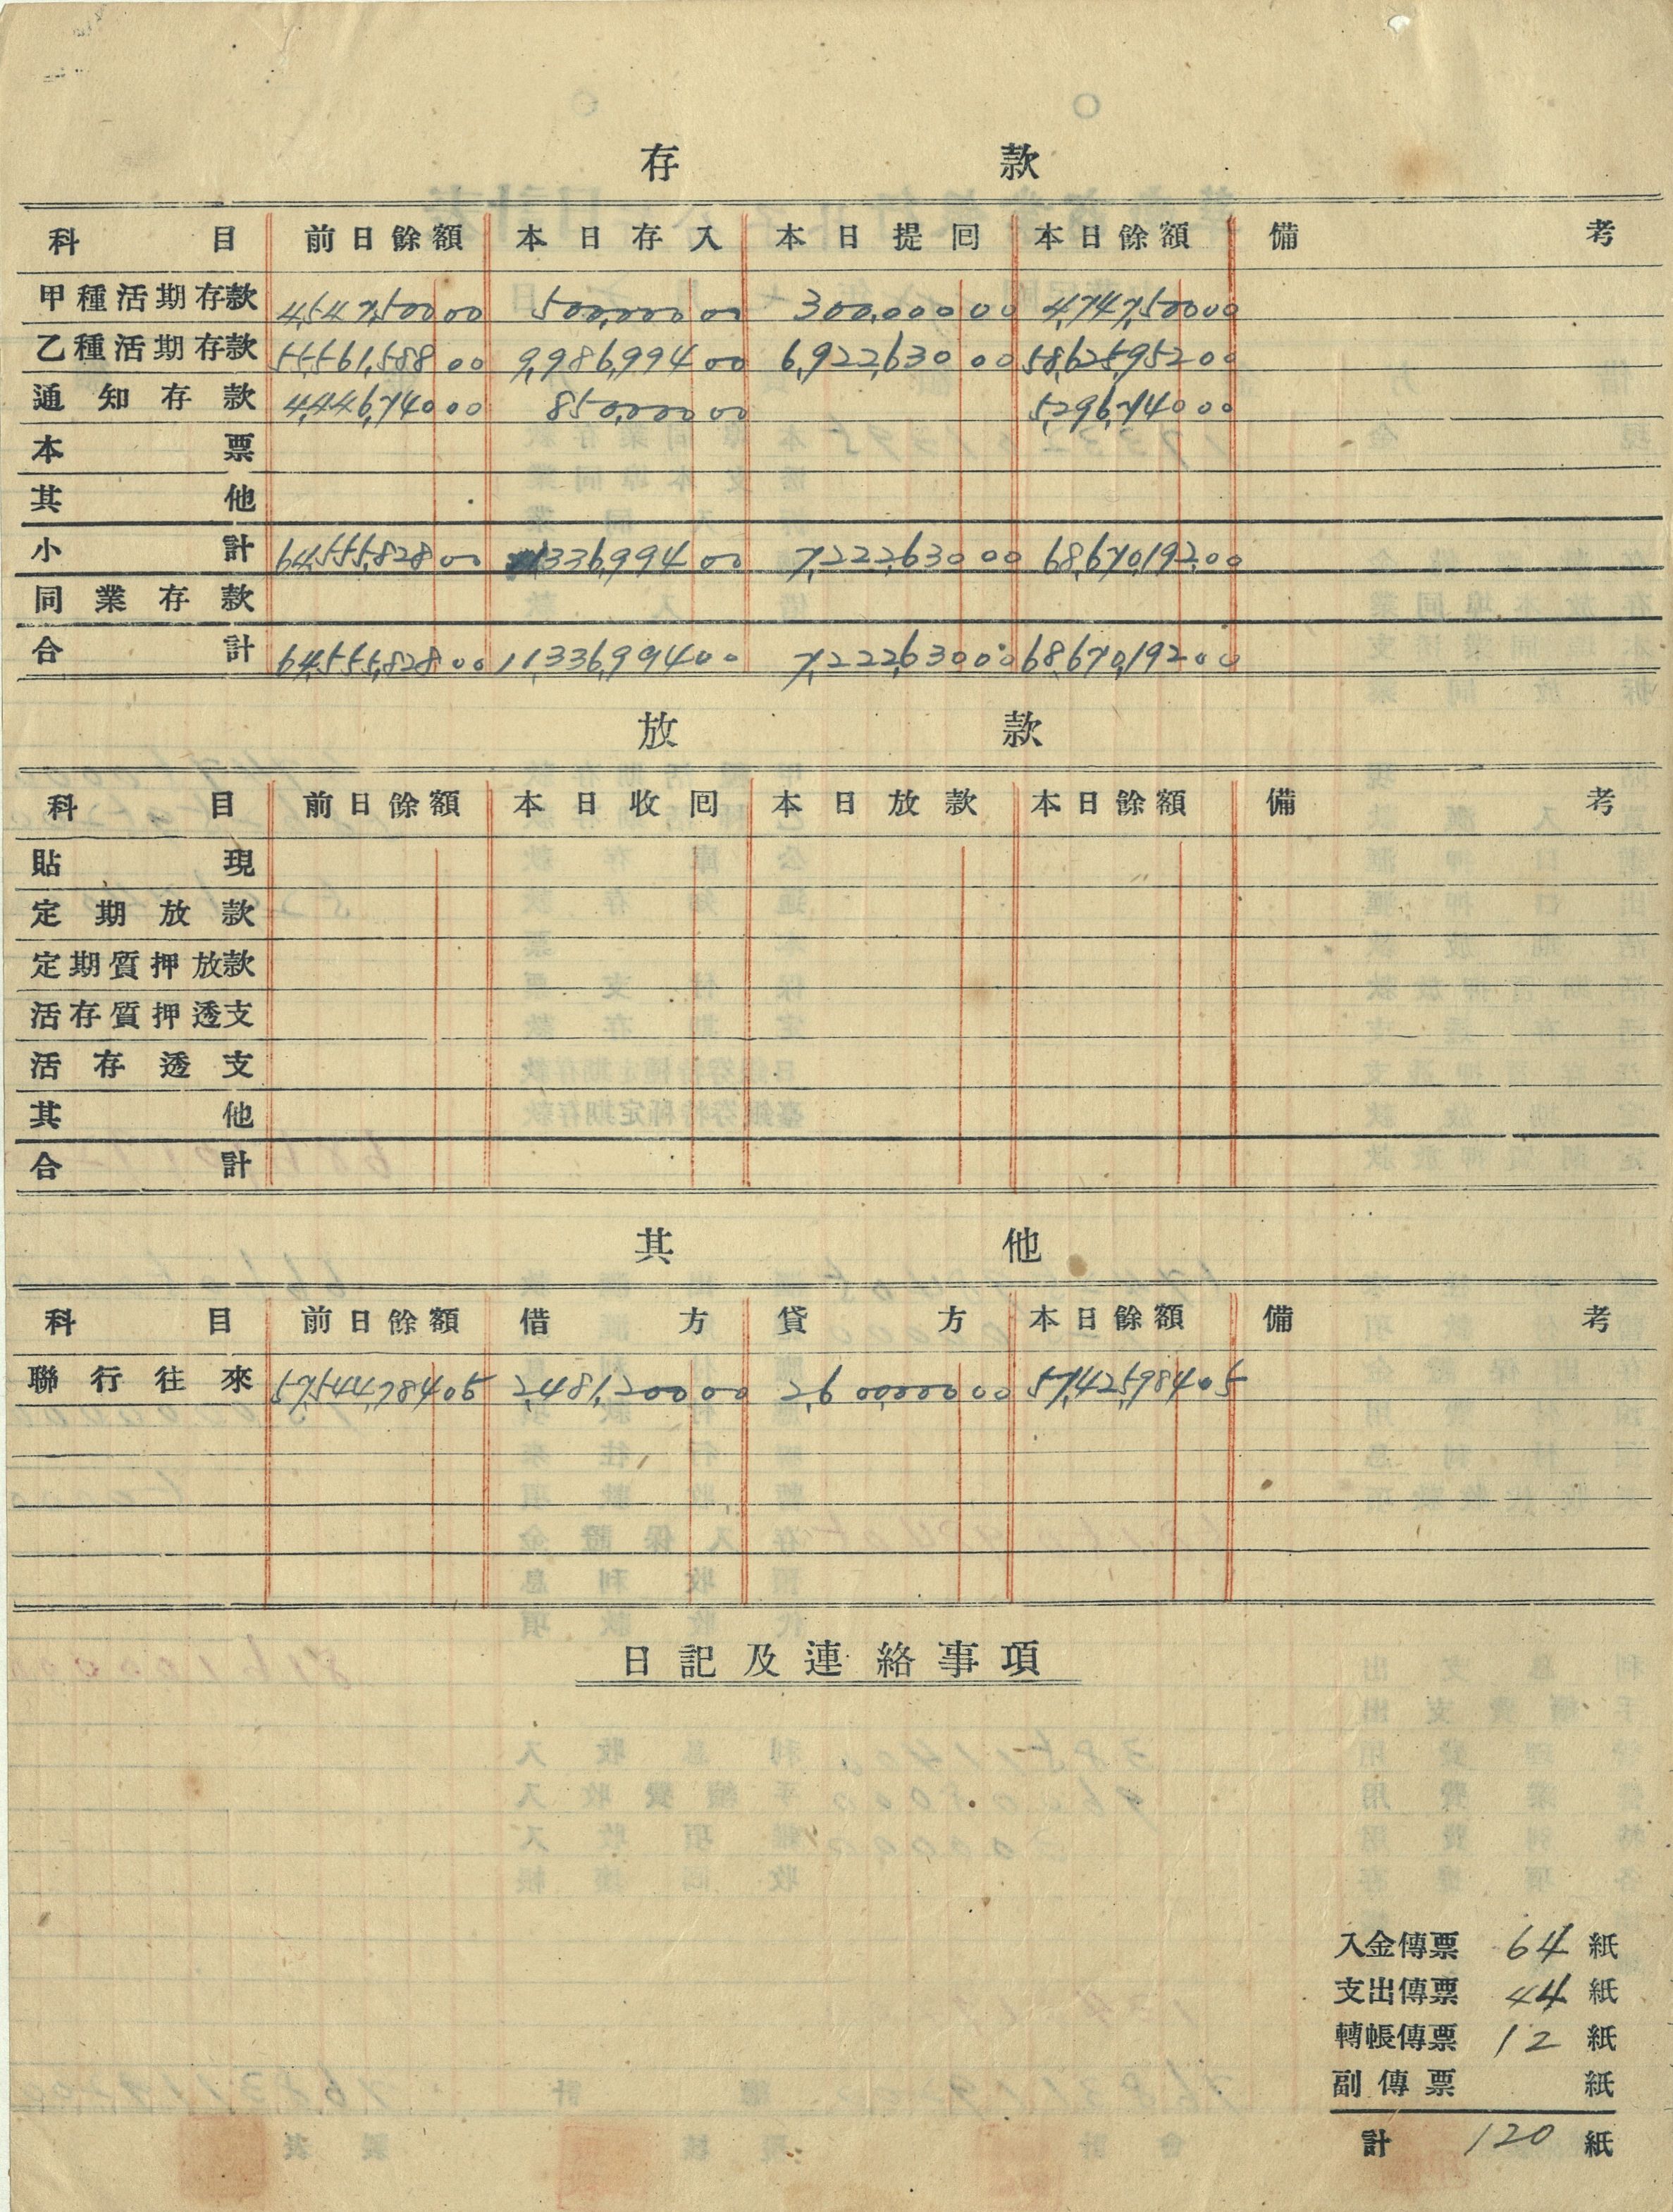 存款
科目 前日餘額 本日存入 本日提囘 本日餘額 備考
甲種活期存款 4,547,500 00 500,000 00 300,000 00 4,747,500 00
乙種活期存款 55,561,588 00 9,986,994 00 6,922,630 00 58,625,952 00
通知存款 4,446,740 00 850,000 00 5,296,740 00
本票
其他
小計 64,555,828 00 11,336,994 00 7,222,630 00 68,670,192 00
同業存款
合計 64,555,828 00 11,336,994 00 7,222,630 00 68,670,192 00
放款
科目 前日餘額 本日收囘 本日放款 本日餘額 備考
貼現
定期放款
定期質押放款
活存質押透支
活存透支
其他
合計
其他
科目 前日餘額 借方 貸方 本日餘額 備考
聯行往來 57,544,784 05 2,481,200 00 2,600,000 00 57,425,984 05
日記及連絡事項
入金傳票 64 紙
支出傳票 44 紙
轉帳傳票 12 紙
副傳票 紙
計 120 紙